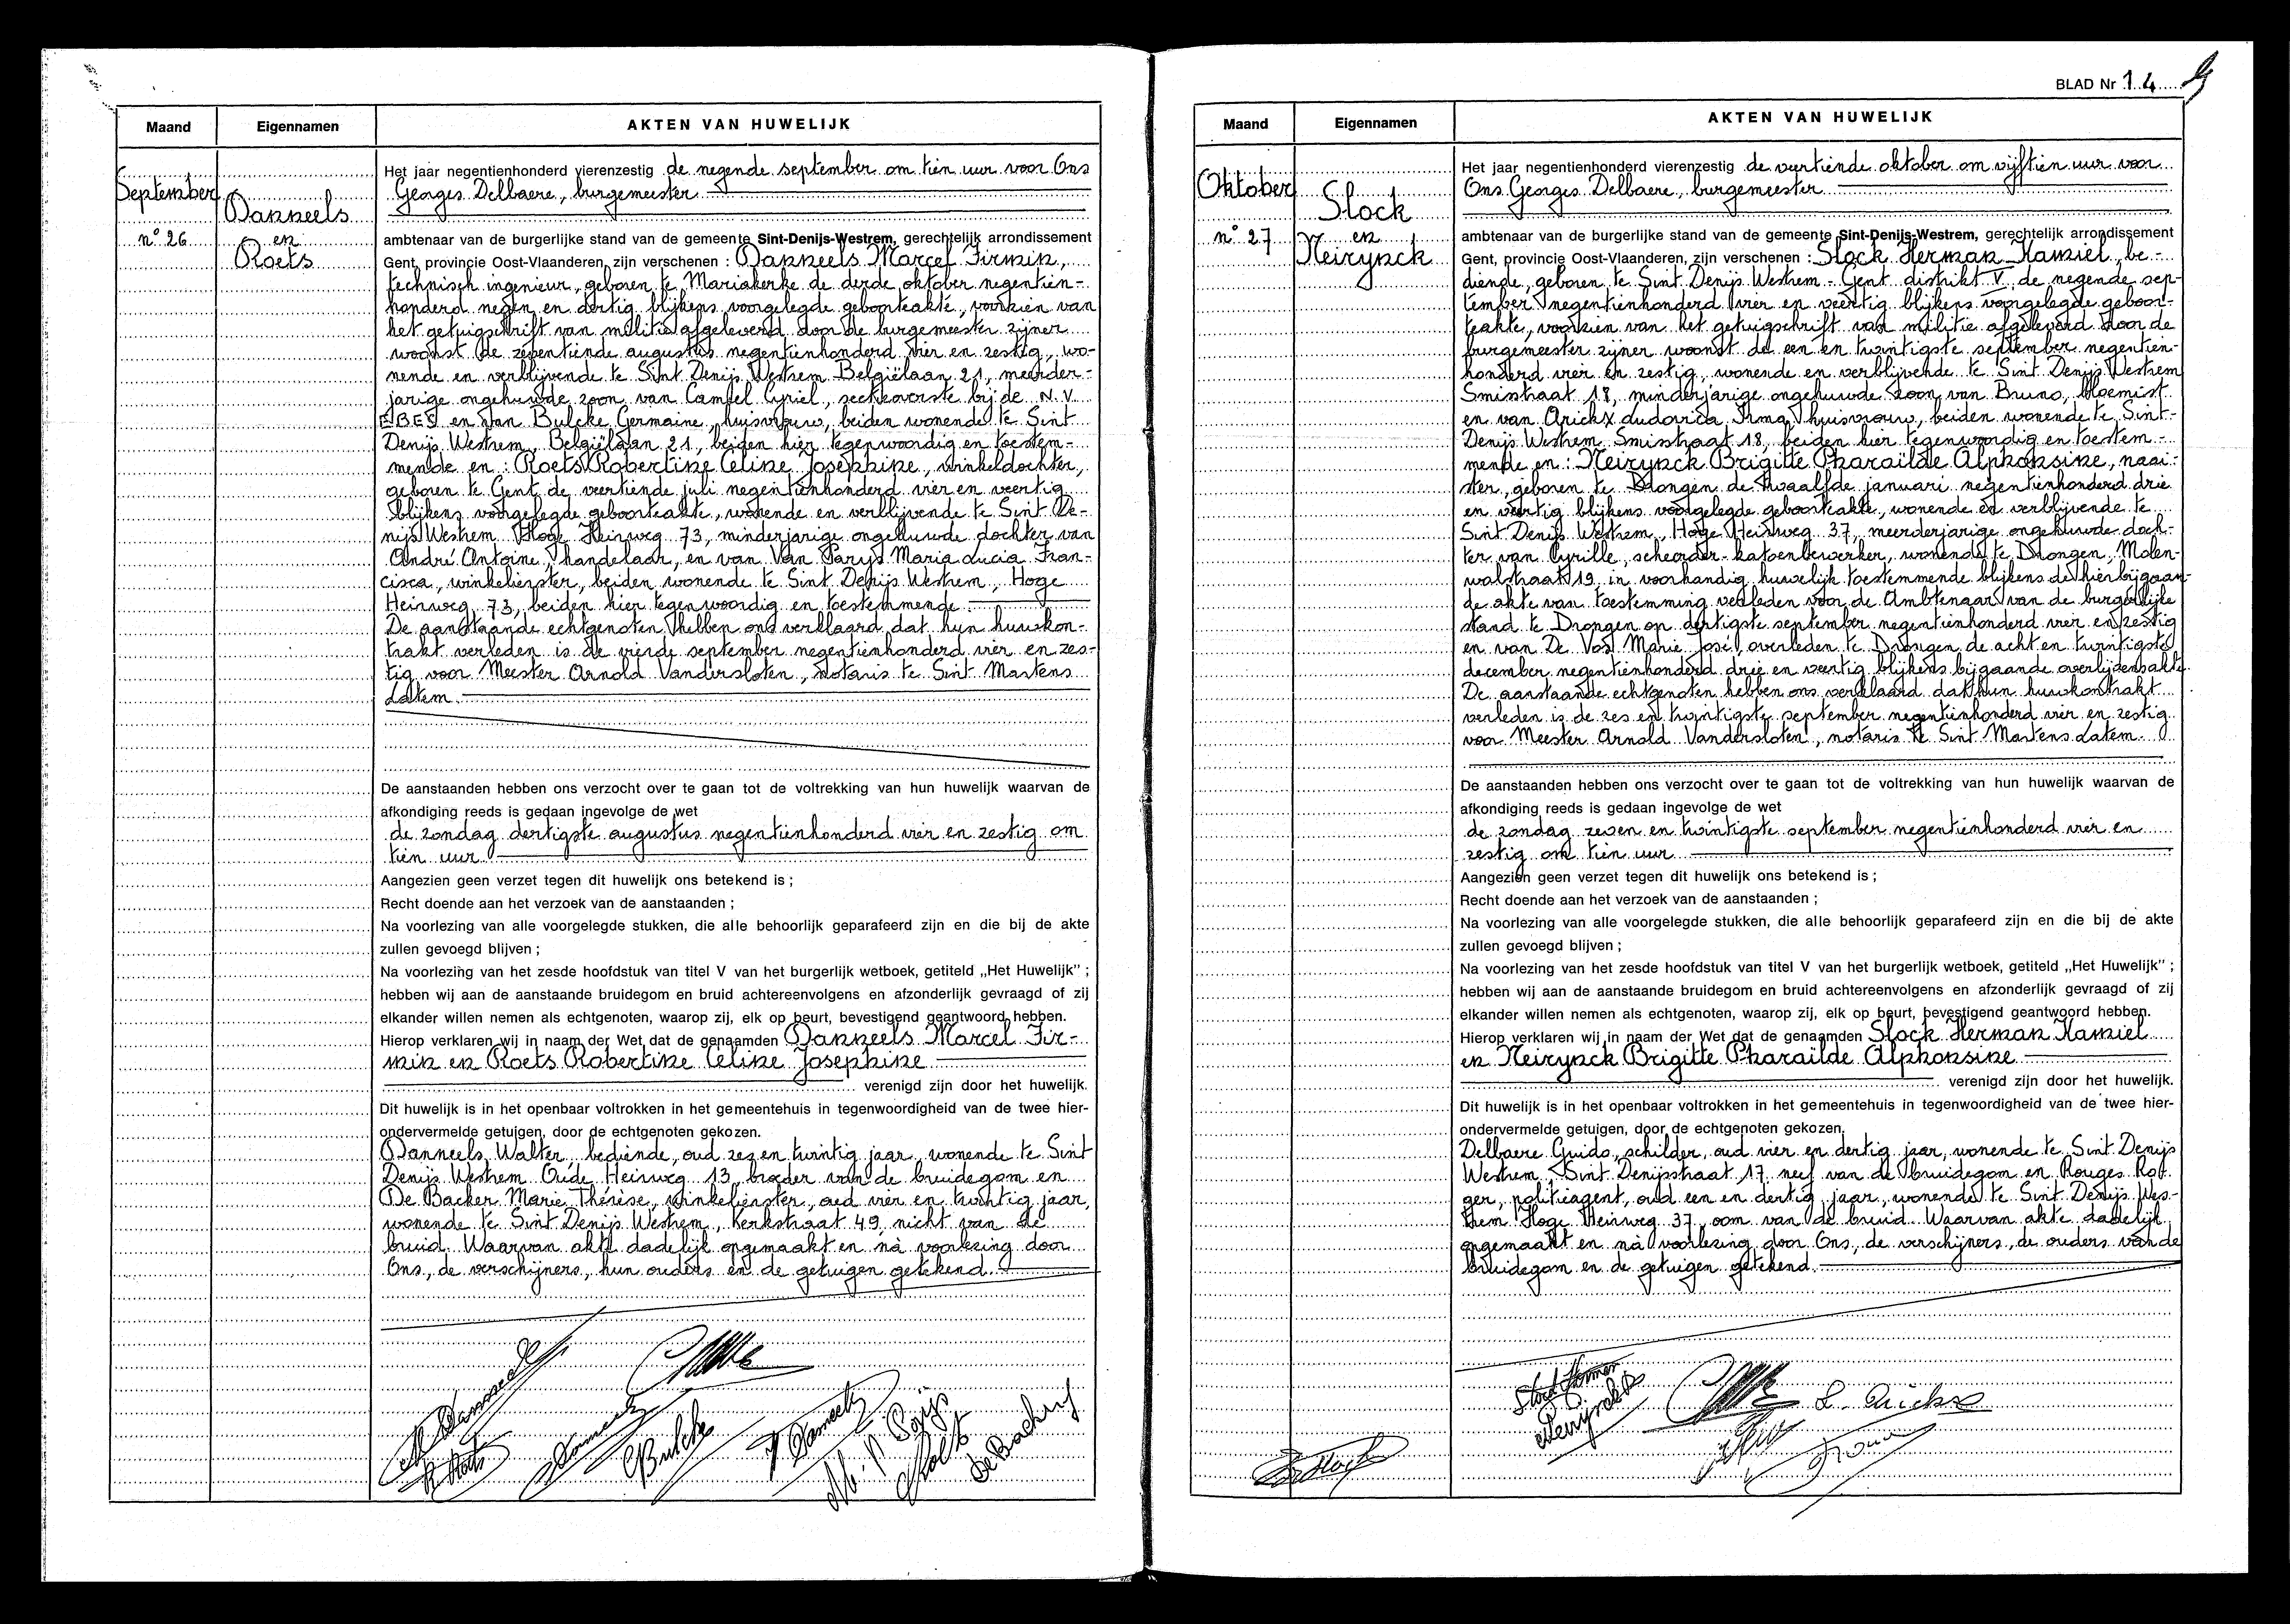 Maand
Eigennamen
AKTEN VAN HUWELIJK
September
Danneels
n° 26
en
Roets
Het jaar negentienhonderd vierenzestig de negende september om tien uur voor Ons
Georges Delbaere, burgemeester
ambtenaar van de burgerlijke stand van de gemeente Sint-Denijs-Westrem, gerechtelijk arrondissement
Gent, provincie Oost-Vlaanderen, zijn verschenen : Danneels Marcel Firmin,
technisch ingenieur, geboren te Mariakerke de derde oktober negentien-
honderd negen en dertig blijkens voorgelegde geboorteakte, voorzien van
het getuigschrift van militie afgeleverd door de burgemeester zijner
woonst de zeventiende augustus negentienhonderd vier en zestig, wo-
nende en verblijvende te Sint Denijs Westrem Belgiëlaan 21, meerder-
jarige ongehuwde zoon van Camiel Cyriel, sectieoverste bij de N.V.
EBES en Van Bulcke Germaine, huisvrouw, beiden wonende te Sint
Denijs Westrem, Belgiëlaan 21, beiden hier tegenwoordig en toestem-
mende en : Roets Robertine Celine Josephine, winkeldochter,
geboren te Gent de veertiende juli negentienhonderd vier en veertig
blijkens voorgelegde geboorteakte, wonende en verblijvende te Sint De-
nijs Westrem Hoge Heirweg 73, minderjarige ongehuwde dochter van
André Antoine, handelaar, en van Van Parys Maria Lucia Fran-
cisca, winkelierster, beiden wonende te Sint Denijs Westrem, Hoge
Heirweg 73, beiden hier tegenwoordig en toestemmende.
De aanstaande echtgenoten hebben ons verklaard dat hun huwkon-
trakt verleden is de vierde september negentienhonderd vier en zes-
tig voor Meester Arnold Vandersloten, notaris te Sint Martens
Latem.
De aanstaanden hebben ons verzocht over te gaan tot de voltrekking van hun huwelijk waarvan de
afkondiging reeds is gedaan ingevolge de wet
de zondag dertigste augustus negentienhonderd vier en zestig om
tien uur
Aangezien geen verzet tegen dit huwelijk ons betekend is ;
Recht doende aan het verzoek van de aanstaanden ;
Na voorlezing van alle voorgelegde stukken, die alle behoorlijk geparafeerd zijn en die bij de akte
zullen gevoegd blijven ;
Na voorlezing van het zesde hoofdstuk van titel V van het burgerlijk wetboek, getiteld „Het Huwelijk" ;
hebben wij aan de aanstaande bruidegom en bruid achtereenvolgens en afzonderlijk gevraagd of zij
elkander willen nemen als echtgenoten, waarop zij, elk op beurt, bevestigend geantwoord hebben.
Hierop verklaren wij in naam der Wet dat de genaamden Danneels Marcel Fir-
min en Roets Robertine Celine Josephine
verenigd zijn door het huwelijk.
Dit huwelijk is in het openbaar voltrokken in het gemeentehuis in tegenwoordigheid van de twee hier-
ondervermelde getuigen, door de echtgenoten gekozen.
Danneels Walter, bediende, oud zes en twintig jaar, wonende te Sint
Denijs Westrem Oude Heirweg 13, broeder van de bruidegom en
De Backer Marie Thérèse, winkelierster, oud vier en twintig jaar,
wonende te Sint Denijs Westrem, Kerkstraat 49, nicht van de
bruid. Waarvan akte dadelijk opgemaakt en nà voorlezing door
Ons, de verschijners, hun ouders en de getuigen getekend.
R Roets
Bulcke
De Backer
BLAD Nr 14
Maand
Eigennamen
AKTEN VAN HUWELIJK
Oktober
Slock
n° 27
en
Neirynck
Het jaar negentienhonderd vierenzestig de veertiende oktober om vijftien uur voor
Ons Georges Delbaere, burgemeester
ambtenaar van de burgerlijke stand van de gemeente Sint-Denijs-Westrem, gerechtelijk arrondissement
Gent, provincie Oost-Vlaanderen, zijn verschenen : Slock Herman Kamiel, be-
diende, geboren te Sint Denijs Westrem - Gent distrikt V de negende sep-
tember negentienhonderd vier en veertig blijkens voorgelegde geboor-
teakte, voorzien van het getuigschrift van militie afgeleverd door de
burgemeester zijner woonst de een en twintigste september negentien-
honderd vier en zestig, wonende en verblijvende te Sint Denijs Westrem
Smisstraat 18, minderjarige ongehuwde zoon van Bruno, bloemist
en van Arickx Ludovica Irma, huisvrouw, beiden wonende te Sint-
Denijs Westrem Smisstraat 18, beiden hier tegenwoordig en toestem-
mende en : Neirynck Brigitte Pharaïlde Alphonsine, naai-
ster, geboren te Drongen de twaalfde januari negentienhonderd drie
en veertig blijkens voorgelegde geboorteakte, wonende en verblijvende te
Sint Denijs Westrem, Hoge Heirweg 37, meerderjarige ongehuwde doch-
ter van Cyrille, scheerder-katoenbewerker, wonende te Drongen, Molen-
walstraat 19 in voorhandig huwelijk toestemmende blijkens de hierbijgaan-
de akte van toestemming verleden voor de Ambtenaar van de burgerlijke
stand te Drongen op dertigste september negentienhonderd vier en zestig
en van De Vos Marie José, overleden te Drongen de acht en twintigste
december negentienhonderd drie en veertig blijkens bijgaande overlijdensakte.
De aanstaande echtgenoten hebben ons verklaard dat hun huwkontrakt
verleden is de zes en twintigste september negentienhonderd vier en zestig
voor Meester Arnold Vandersloten, notaris te Sint Martens Latem.
De aanstaanden hebben ons verzocht over te gaan tot de voltrekking van hun huwelijk waarvan de
afkondiging reeds is gedaan ingevolge de wet
de zondag zeven en twintigste september negentienhonderd vier en
zestig om tien uur
Aangezien geen verzet tegen dit huwelijk ons betekend is ;
Recht doende aan het verzoek van de aanstaanden ;
Na voorlezing van alle voorgelegde stukken, die alle behoorlijk geparafeerd zijn en die bij de akte
zullen gevoegd blijven ;
Na voorlezing van het zesde hoofdstuk van titel V van het burgerlijk wetboek, getiteld „Het Huwelijk" ;
hebben wij aan de aanstaande bruidegom en bruid achtereenvolgens en afzonderlijk gevraagd of zij
elkander willen nemen als echtgenoten, waarop zij, elk op beurt, bevestigend geantwoord hebben.
Hierop verklaren wij in naam der Wet dat de genaamden Slock Herman Kamiel
en Neirynck Brigitte Pharaïlde Alphonsine
verenigd zijn door het huwelijk.
Dit huwelijk is in het openbaar voltrokken in het gemeentehuis in tegenwoordigheid van de twee hier-
ondervermelde getuigen, door de echtgenoten gekozen.
Delbaere Guido, schilder, oud vier en dertig jaar, wonende te Sint Denijs
Westrem, Sint Denijsstraat 17 neef van de bruidegom en Rouges Rot
ger, politieagent, oud een en dertig jaar, wonende te Sint Denijs Wes-
trem Hoge Heirweg 37, oom van de bruid. Waarvan akte dadelijk
opgemaakt en nà voorlezing door Ons, de verschijners, de ouders van de
bruidegom en de getuigen getekend.
Slock Herman
Neirynck B
L. Arickx